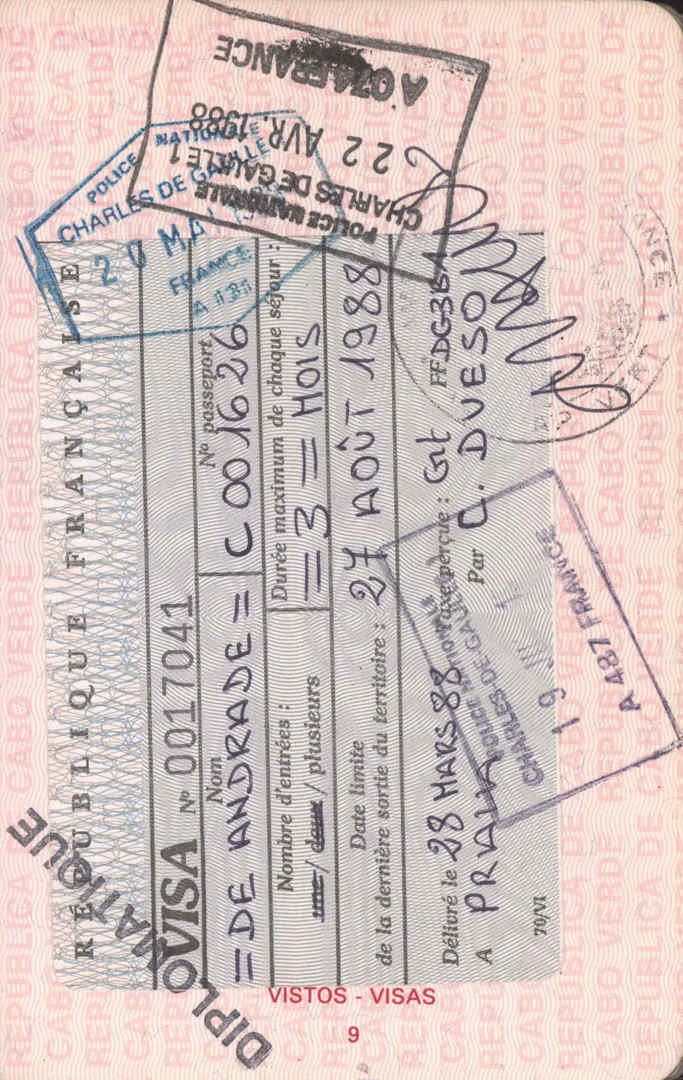 RÉPUBLIQUE FRANÇAISE
DIPLOMATIQUE
VISA Nº 0017041
Nom
Nº passeport
= DE ANDRADE =
C 001626
Nombre d'entrées :
Durée maximum de chaque séjour :
une / deux / plusieurs
= 3 = MOIS
Date limite
de la dernière sortie du territoire : 27 AOÛT 1988
Délivré le 28 MARS 88 Taxe perçue : Grt
A PRAIA Par C. DUESO
70/VI
POLICE NATIONALE
CHARLES DE GAULLE 1
22 AVR. 1988
A 074 FRANCE
POLICE NATIONALE
CHARLES DE GAULLE
20 MAI
FRANCE
A 131
CHARLES DE GAULLE
19
A 487 FRANCE
VISTOS - VISAS
9